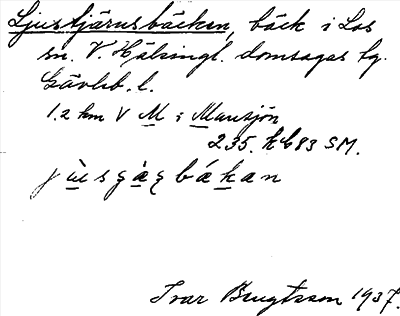 Ljustjärnsbäcken, bäck i Los
sn. V. Hälsingl. domsagas tg.
Gävleb. l.
1.2 km V M i Mansjön
235. hk683 SM.
Ivar Bengtsson 1937.